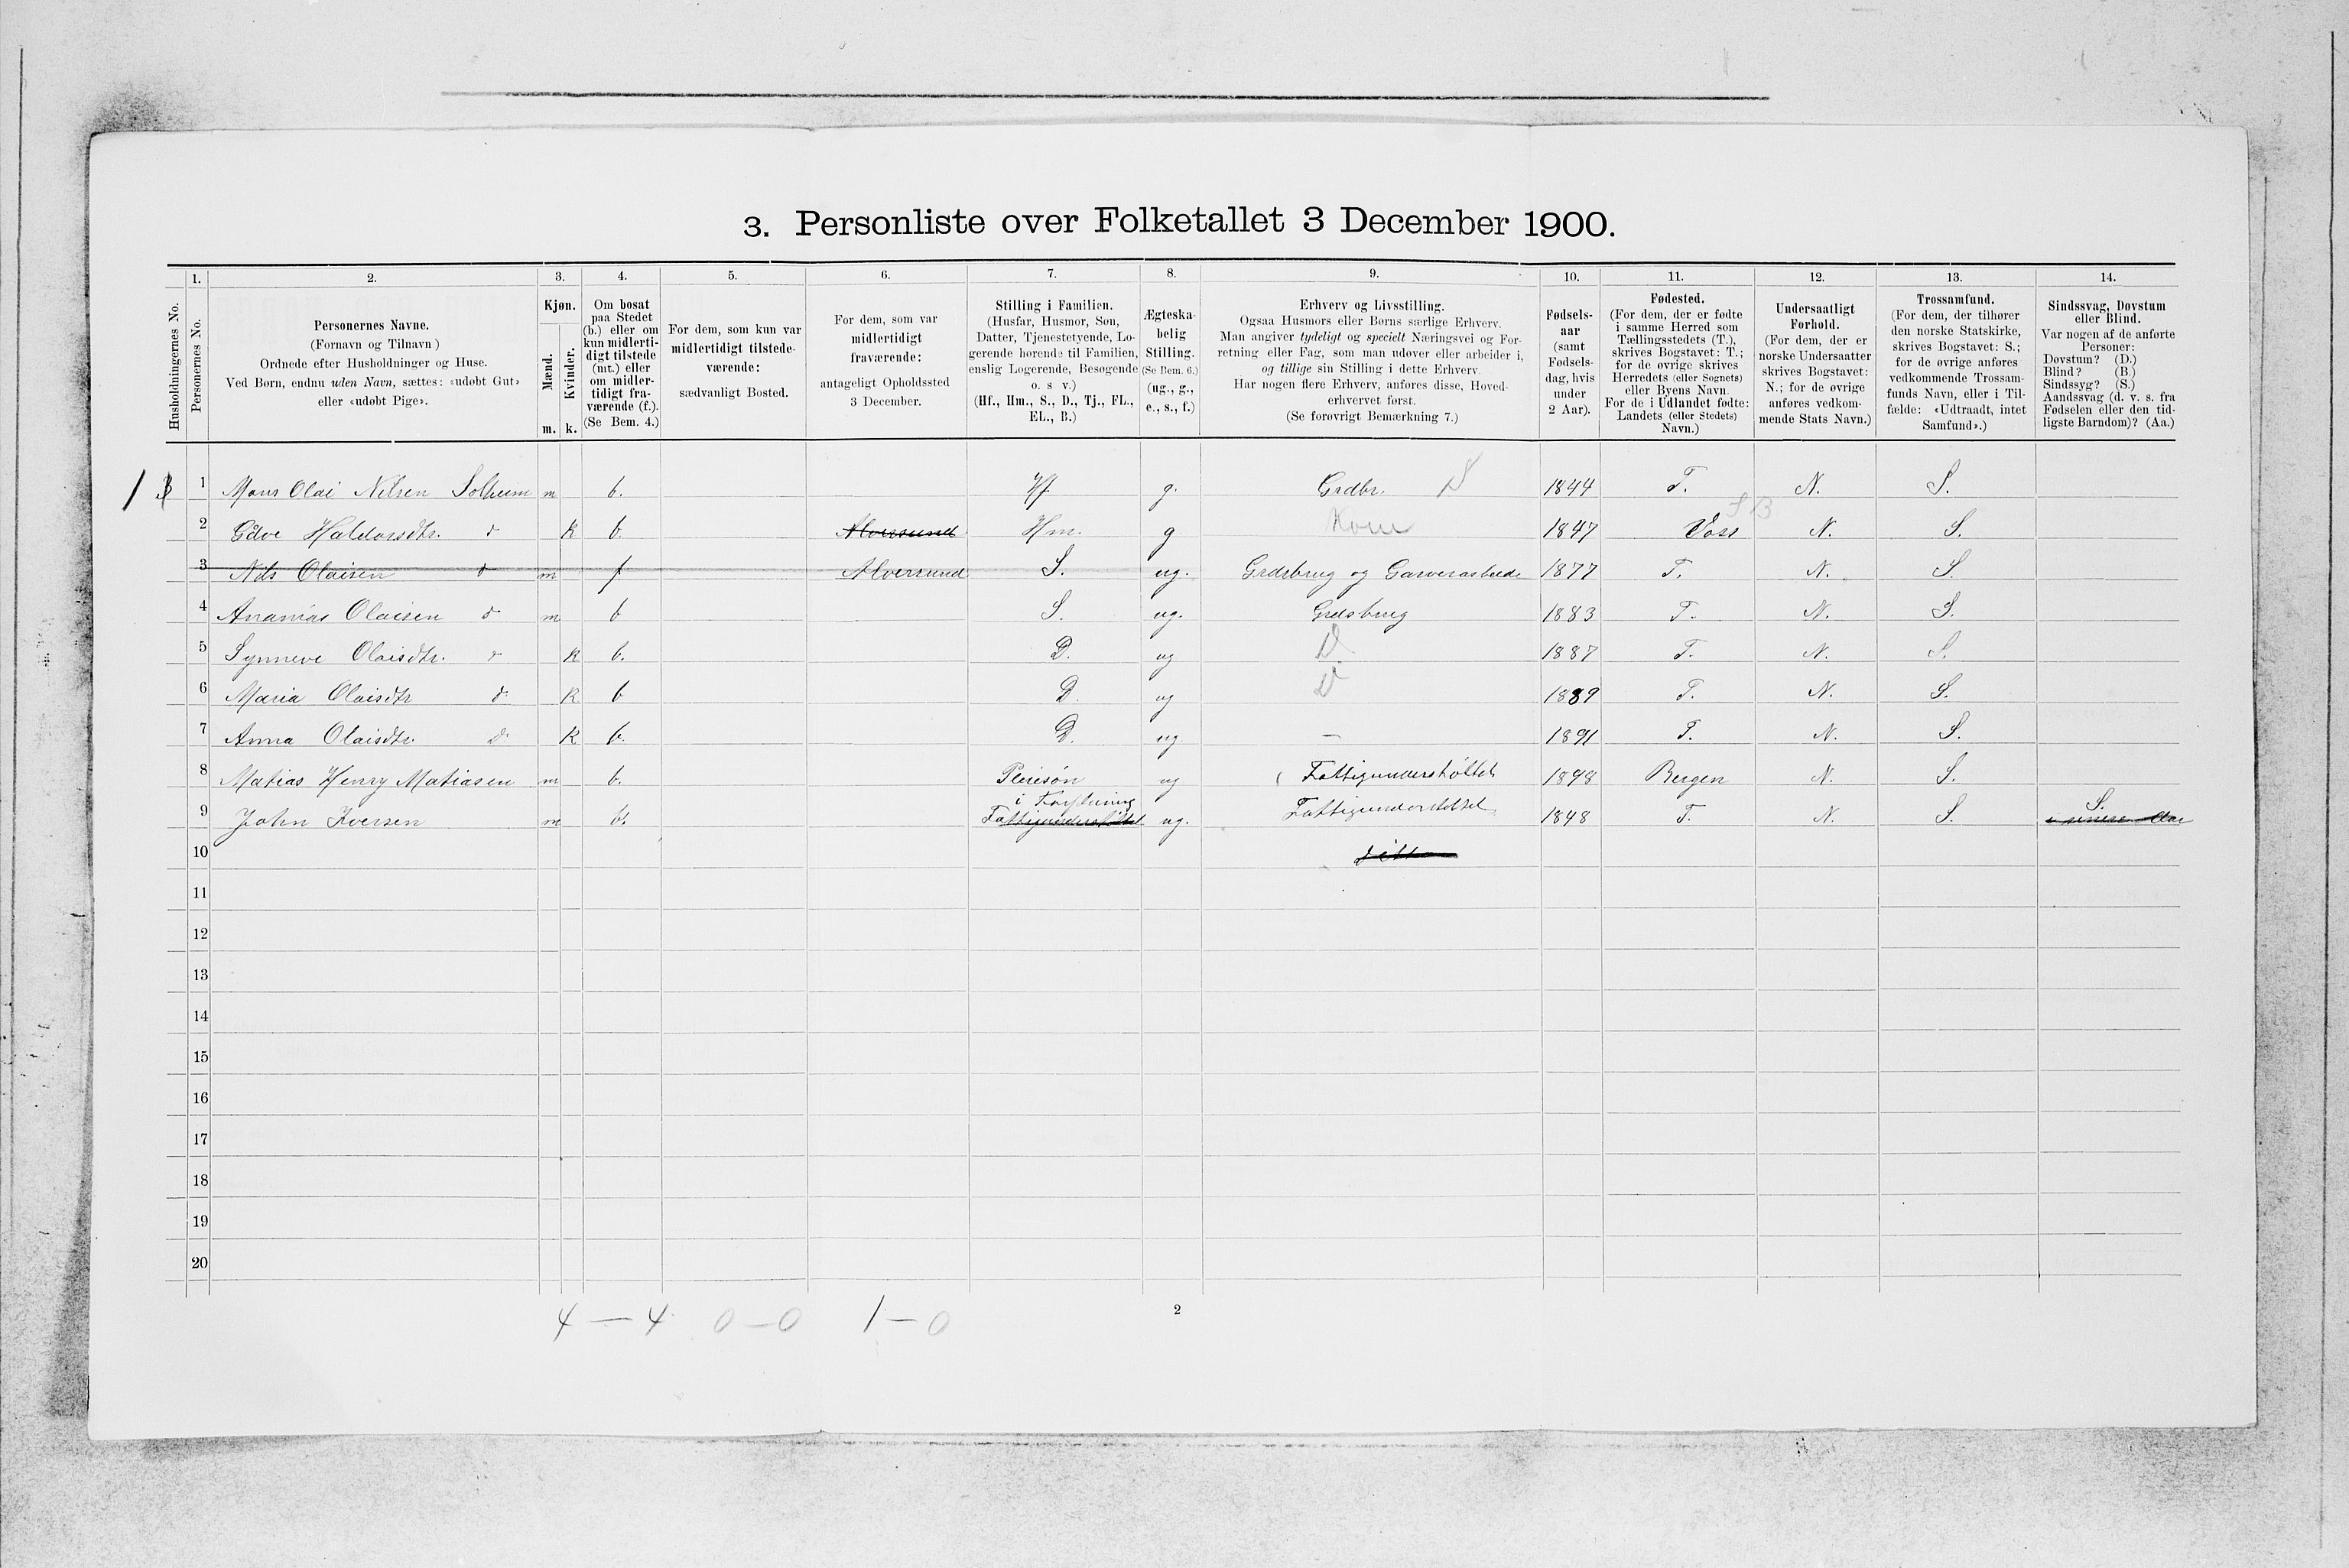 3. Personliste over Folketallet 3 December 1900.
Husholdningernes No.
1.
Personernes No.
2.
Personernes Navne.
(Fornavn og Tilnavn)
Ordnede efter Husholdninger og Huse.
Ved Børn, endnu uden Navn, sættes: «udøbt Gut»
eller «udøbt Pige».
3.
Kjøn.
Mænd.
Kvinder.
m. k.
4.
Om bosat
paa Stedet
(b.) eller om
kun midlerti-
digt tilstede
(mt.) eller
om midler-
tidigt fra-
værende (f.).
(Se Bem. 4.)
5.
For dem, som kun var
midlertidigt tilstede-
værende:
sædvanligt Bosted.
6.
For dem, som var
midlertidigt
fraværende:
antageligt Opholdssted
3 December.
7.
Stilling i Familien.
(Husfar, Husmor, Søn,
Datter, Tjenestetyende, Lo-
gerende hørende til Familien,
enslig Logerende, Besøgende
o. s v.)
(Hf., Hm., S., D., Tj., FL.,
EL., B.)
8.
Ægteska-
belig
Stilling.
(Se Bem. 6.)
(ug., g.,
e., s., f.)
9.
Erhverv og Livsstilling.
Ogsaa Husmors eller Børns særlige Erhverv.
Man angiver tydeligt og specielt Næringsvei og For-
retning eller Fag, som man udøver eller arbeider i,
og tillige sin Stilling i dette Erhverv.
Har nogen flere Erhverv, anføres disse, Hoved-
erhvervet først.
(Se forøvrigt Bemærkning 7.)
10.
Fødsels-
aar
(samt
Fødsels-
dag, hvis
under
2 Aar).
11.
Fødested.
(For dem, der er fødte
i samme Herred som
Tællingsstedets (T.),
skrives Bogstavet: T.;
for de øvrige skrives
Herredets (eller Sognets)
eller Byens Navn.
For de i Udlandet fødte:
Landets (eller Stedets)
Navn.)
12.
Undersaatligt
Forhold.
(For dem, der er
norske Undersaatter
skrives Bogstavet:
N.; for de øvrige
anføres vedkom-
mende Stats Navn.)
13.
Trossamfund.
(For dem, der tilhører
den norske Statskirke,
skrives Bogstavet: S.;
for de øvrige anføres
vedkommende Trossam-
funds Navn, eller i Til-
fælde: «Udtraadt, intet
Samfund».)
14.
Sindssvag, Døvstum
eller Blind.
Var nogen af de anførte
Personer:
Døvstum? (D.)
Blind? (B.)
Sindssyg? (S.)
Aandssvag (d. v. s. fra
Fødselen eller den tid-
ligste Barndom)? (Aa.)
1 1 Mons Olai Nilsen Solheim m b. Hf g. Grdbr. 1844 T. N. S.
2 Haldorsdtr. d k b. Alversund Hm. g Kone 1847 Voss N. S.
3 Nils Olaisen d m f Alversund S. ug. Grdsbrug og 1877 T. N. S.
4 Ananias Olaisen d m b S. ug. Grdsbrug 1883 T. N. S.
5 Synneve Olaisdtr. d k b. D. ug D 1887 T. N. S.
6 Maria Olaisdtr d. k b D. ug D 1889 T. N. S.
7 Anna Olaisdtr. d. k b. D. ug. – 1891 T. N. S.
8 Matias Henry Matiasen m b. Pleiesøn ug Fattigunderstøttet 1898 Bergen N. S.
9 John Iversen m b. i Forpleining Fattigunderstøttet ug. Fattigunderstøttet 1848 T. N. S. S.
10
11
12
13
14
15
16
17
18
19
20
4 — 4 0 — 0 1 — 0
2